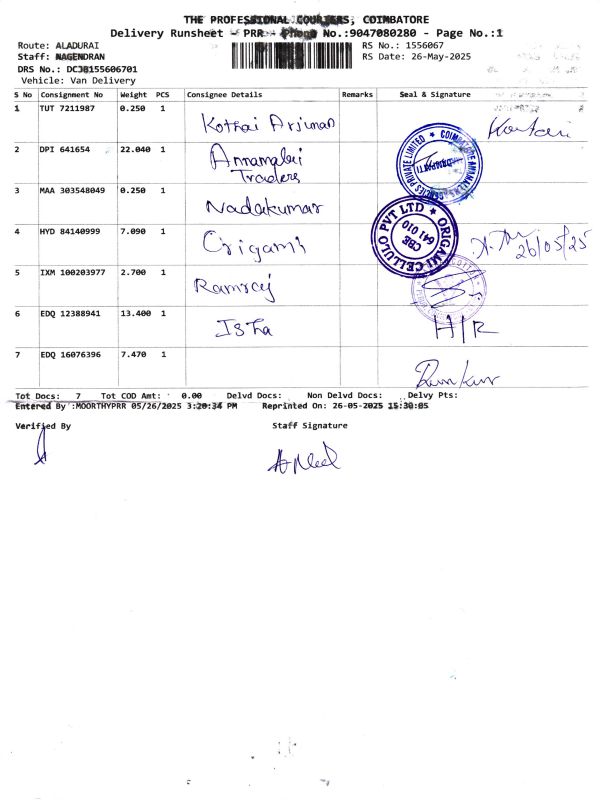 THE PROFESSIONAL COURIERS, COIMBATORE
Delivery Runsheet - PRR - Phone No.:9047080280 - Page No.:1
Route: ALADURAI
RS No.: 1556067
Staff: NAGENDRAN
RS Date: 26-May-2025
DRS No.: DCJB155606701
Vehicle: Van Delivery
S No Consignment No Weight PCS Consignee Details Remarks Seal & Signature
1 TUT 7211987 0.250 1 Kothai Arjunan
2 DPI 641654 22.040 1 Annamalai Traders
3 MAA 303548049 0.250 1 Nadakumar
4 HYD 84140999 7.090 1 Origami 26/05/25
ORIGAMI CELLULO PVT LTD
CBE
641 010
5 IXM 100203977 2.700 1 Ramraj
6 EDQ 12388941 13.400 1 Isha H/R
7 EDQ 16076396 7.470 1
Tot Docs: 7 Tot COD Amt: 0.00 Delvd Docs: Non Delvd Docs: Delvy Pts:
Entered By :MOORTHYPRR 05/26/2025 3:20:34 PM Reprinted On: 26-05-2025 15:30:05
Verified By Staff Signature